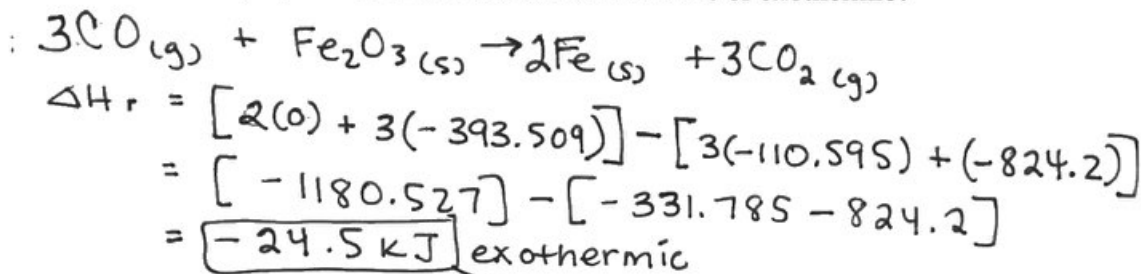 : 3CO(g) + Fe₂O₃(s) → 2Fe(s) + 3CO₂(g)
△Hr = [2(0) + 3(-393.509)] - [3(-110.595) + (-824.2)]
= [-1180.527] - [-331.785 - 824.2]
= -24.5 kJ exothermic